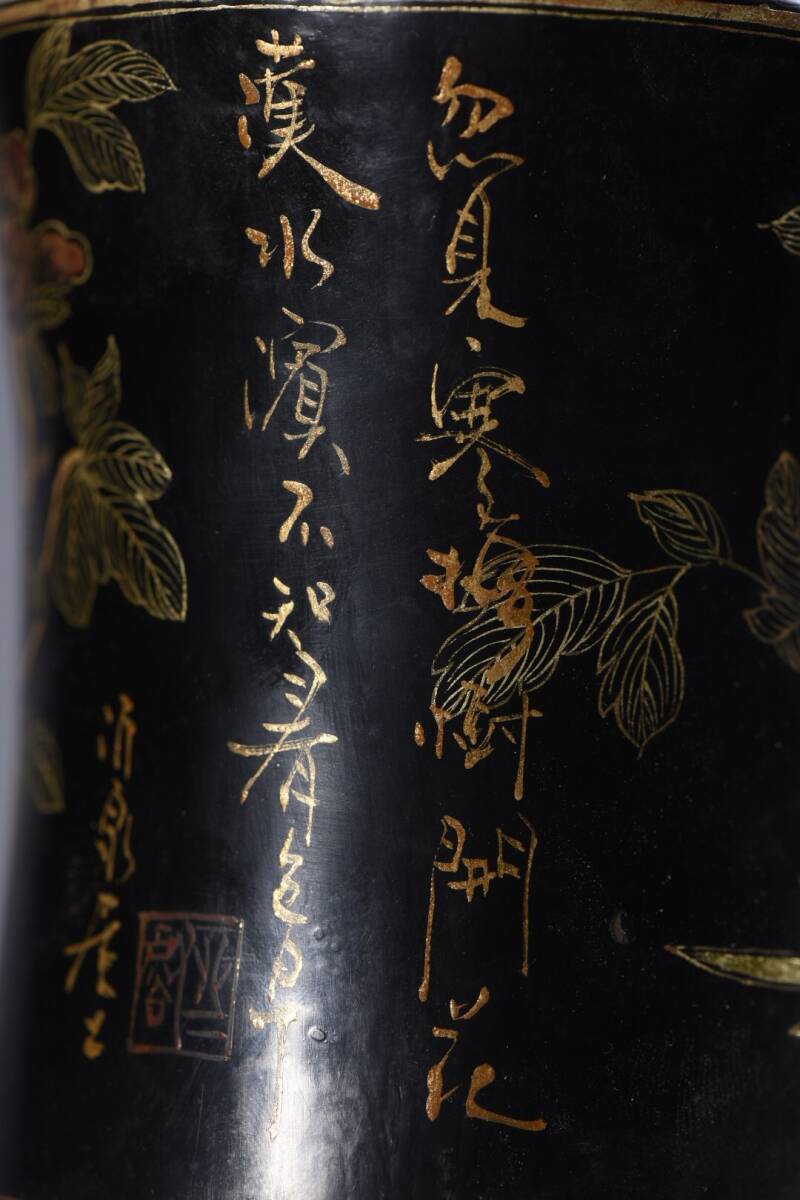 忽見寒梅樹開花
漢水濱不知春色早
居士